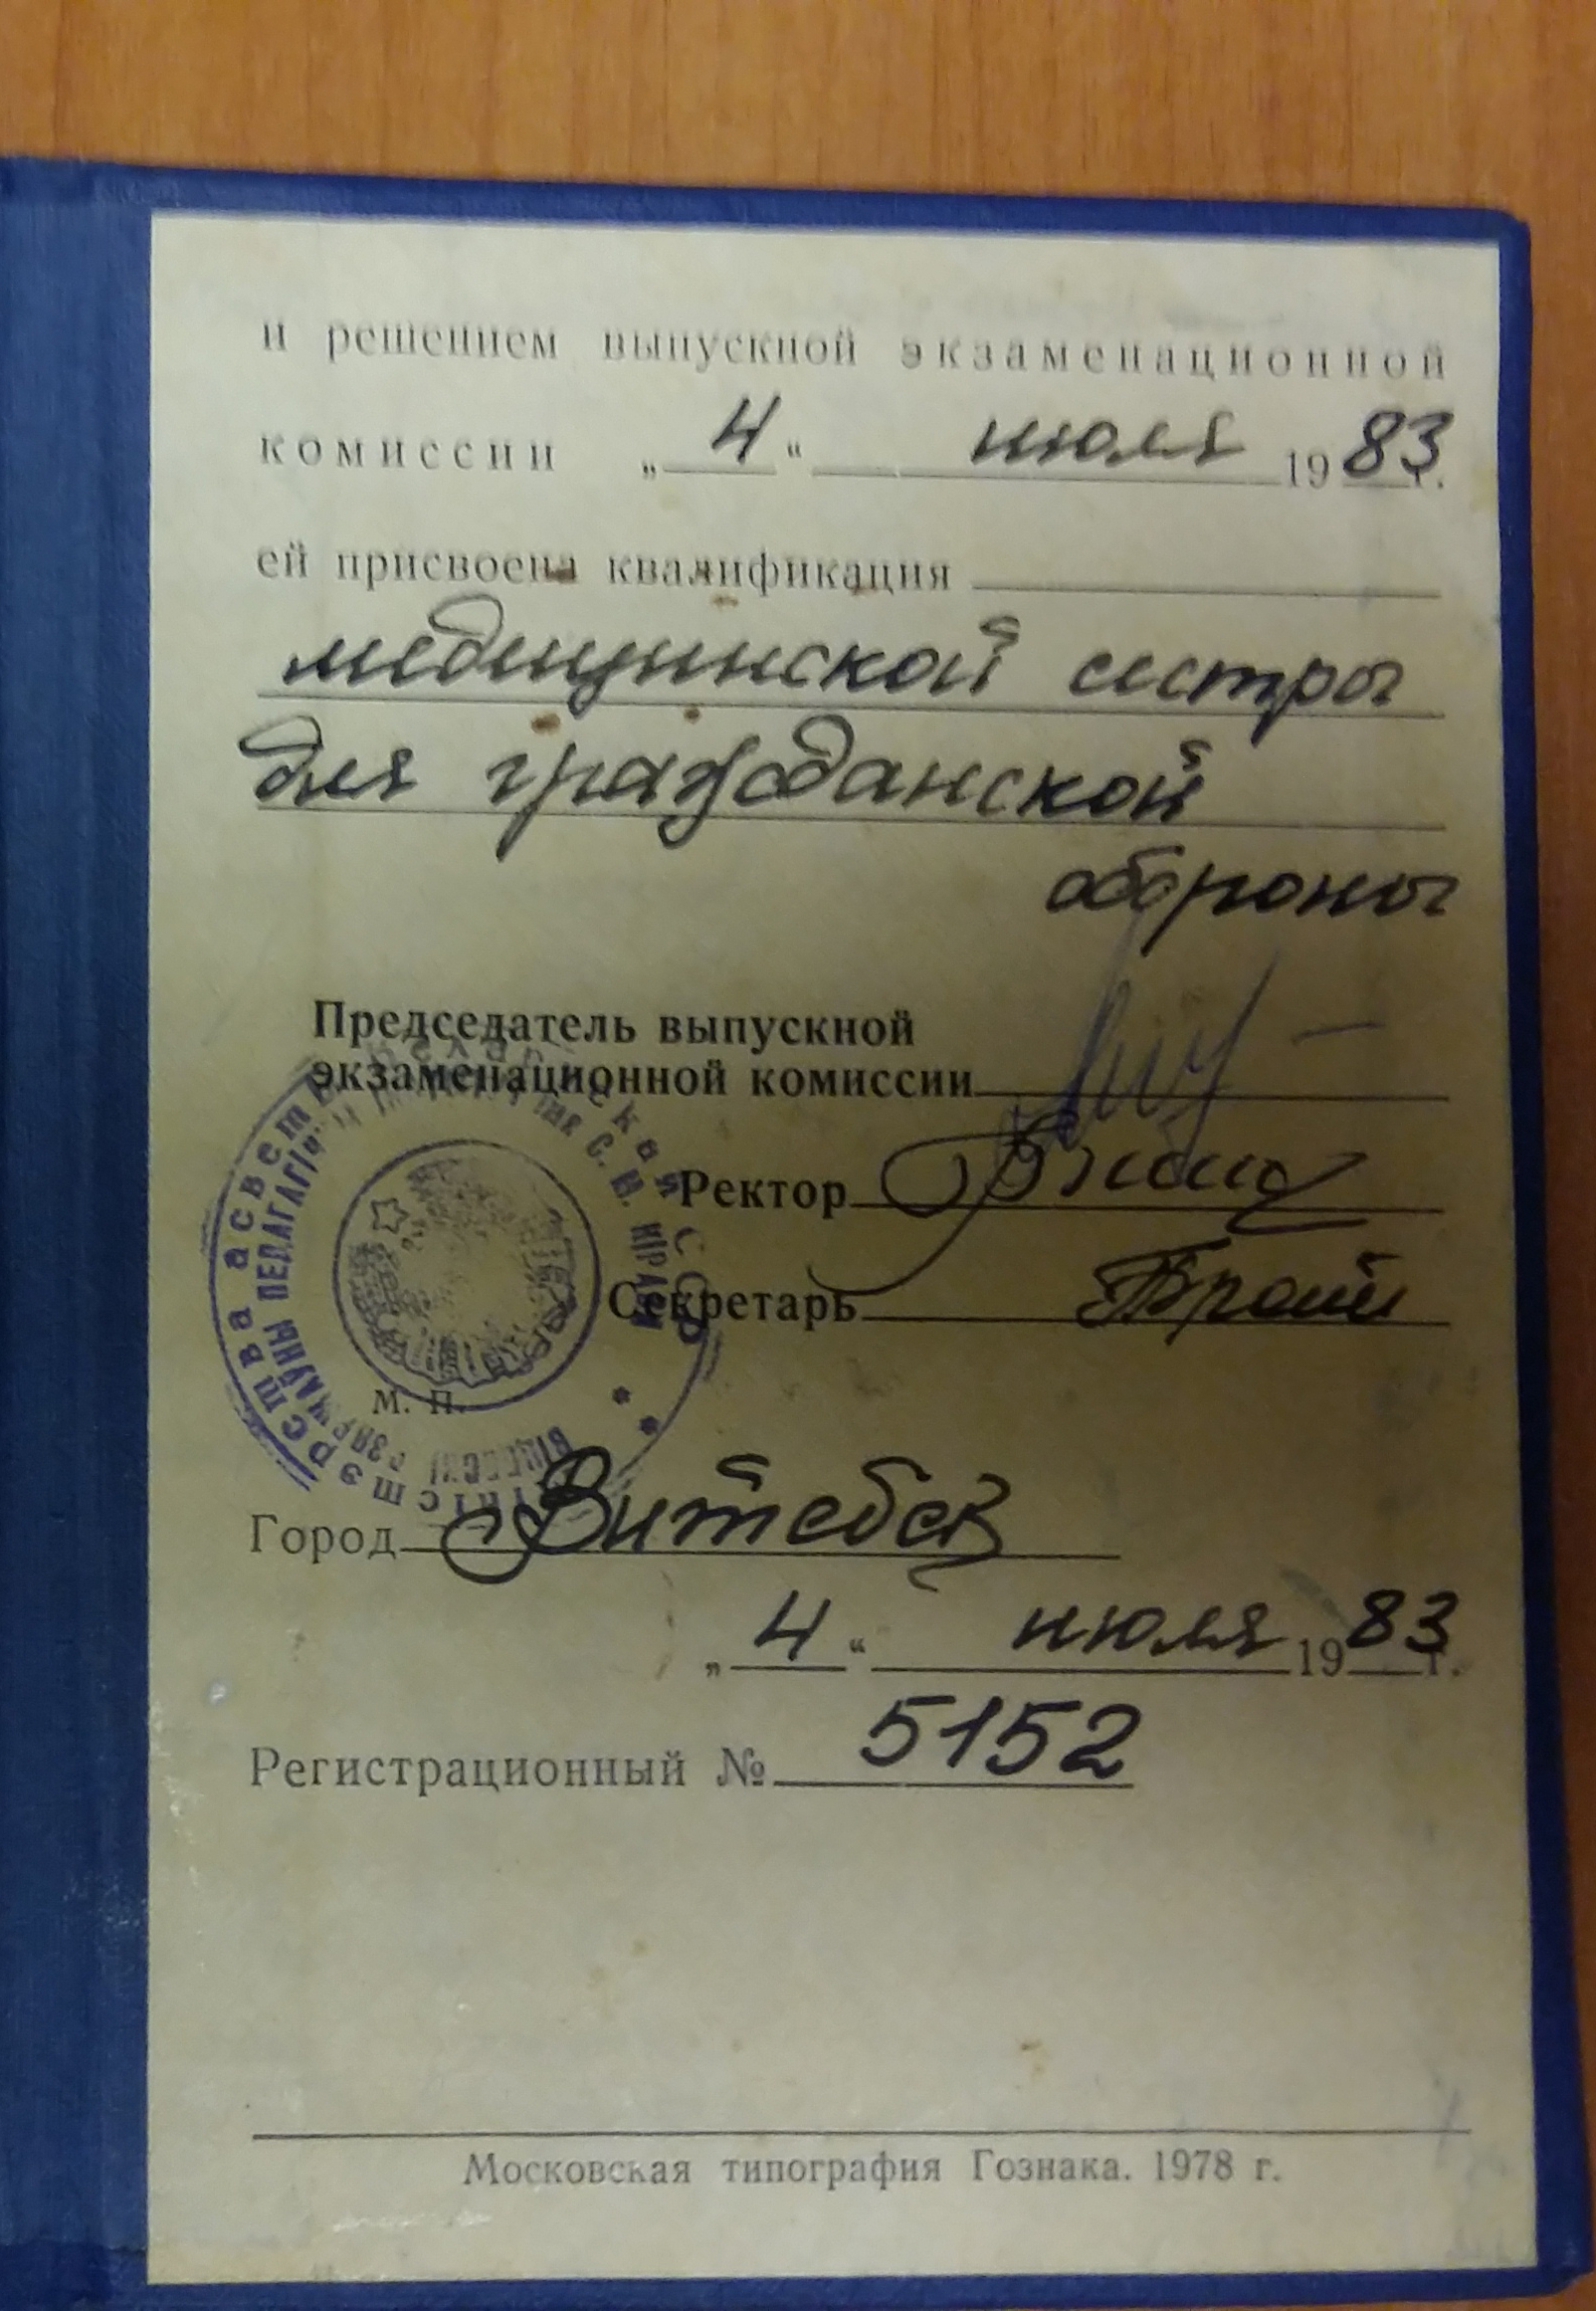 и решением выпускной экзаменационной
комиссии „4“ июля 1983 г.
ей присвоена квалификация
медицинской сестры
для гражданской
обороны
Председатель выпускной
экзаменационной комиссии
Ректор
Секретарь
М. П.
Город Витебск
„4“ июля 1983 г.
Регистрационный № 5152
Московская типография Гознака. 1978 г.